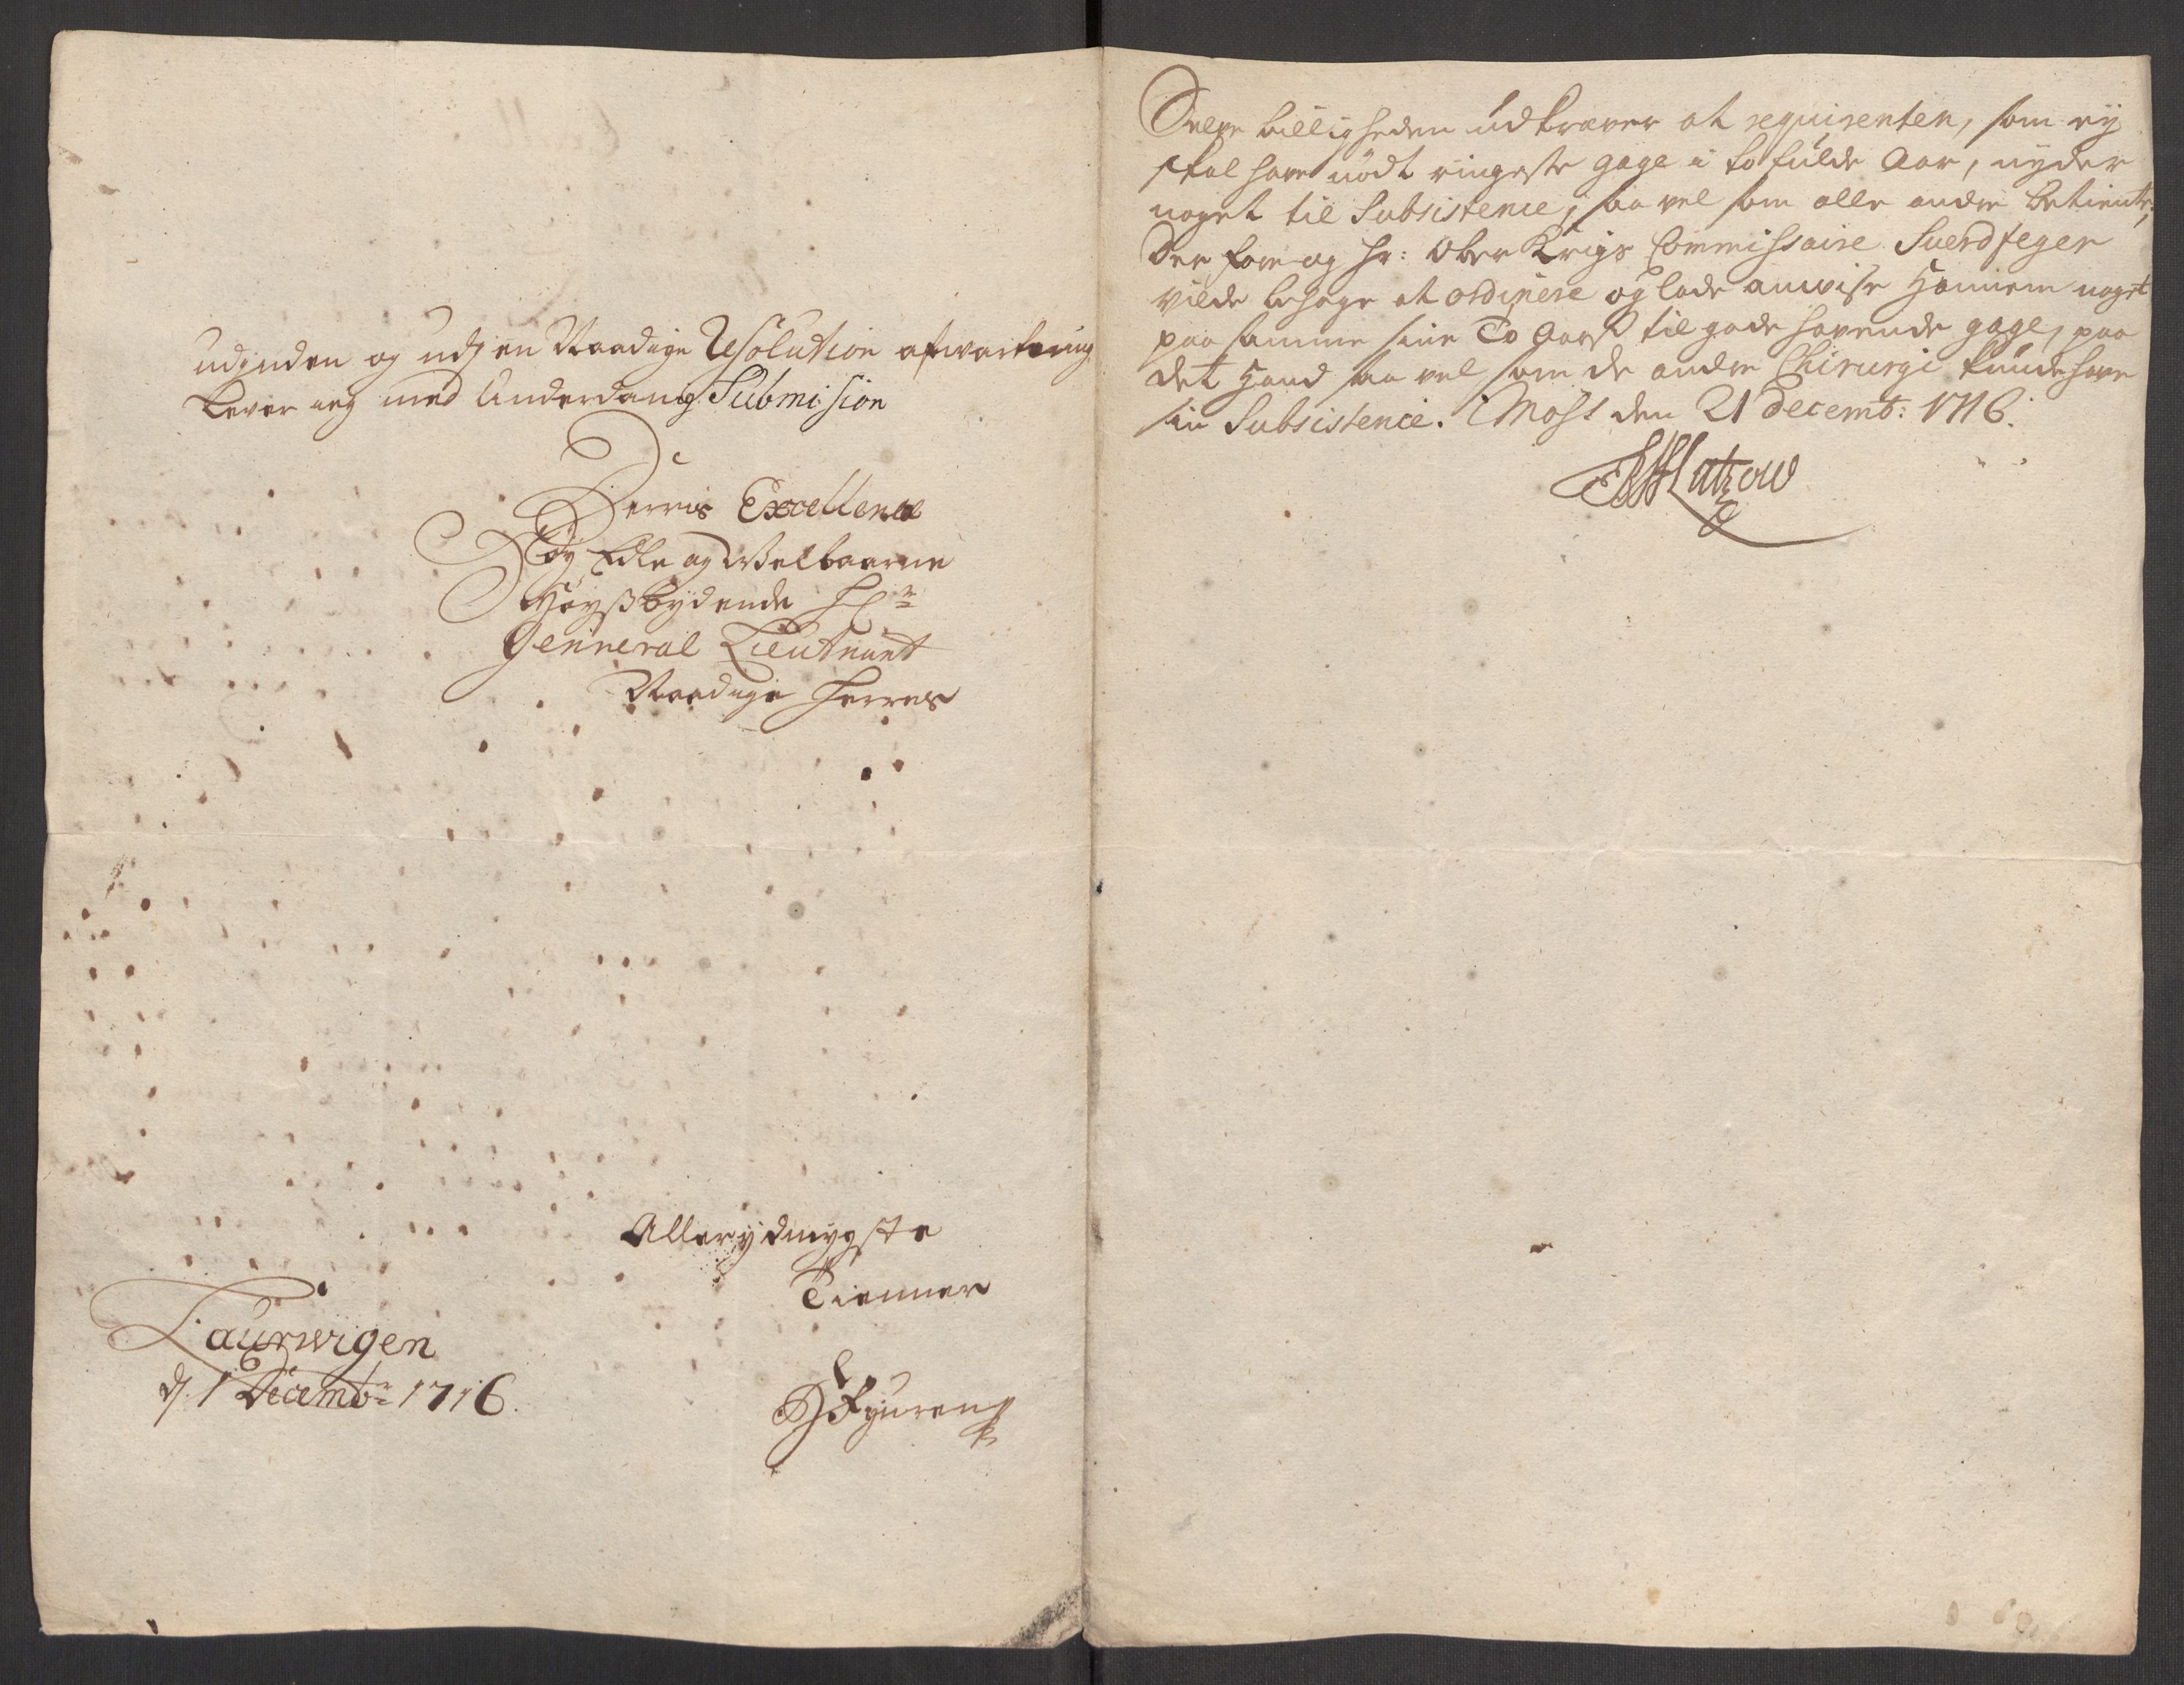 udj enden og udj en Naadige Resolution afwartning
lever ieg med Underdanig Submision
Derris Excellence
Edle og Welbaarne
Høystbydende Hr
Genneral Lieutnant
Naadige Herres
Allerydmygste
Tienner
Laurwigen
d. 1 Decembr 1716.
Selve billigheden udkræver at requirenten, som ey
skal have nødt ringeste gage i to fulde Aar, nyder
noget til Subsistence, saa vel som alle andre betiente,
Der fore og Hr: Ober Krigs Commissaire Suerdfeger
vilde behage at ordinere og lade anvise Hannem noget
paa samme sine To Aars til gode havende gage, paa
det Hand saa vel som de andre Chirurgi kunde have
sin Subsistence. Moss den 21 Decemb: 1716.
Lützow